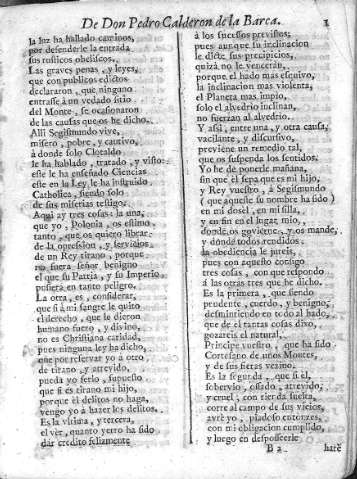 De Don Pedro Calderon de la Barca.
la luz ha hallado caminos,
por defenderle la entrada
sus rusticos obeliscos.
Las graves penas, y leyes,
que con publicos edictos
declararon, que ninguno
entrasse à un vedado sitio
del Monte, se ocasionaron
de las causas que os he dicho.
Alli Segismundo vive,
misero, pobre, y cautivo,
à donde solo Clotaldo
le ha hablado, tratado, y visto:
este le ha enseñado Ciencias
este en la Ley le ha instruido
Catholica, siendo solo
de sus miserias testigo.
Aqui ay tres cosas: la una,
que yo, Polonia, os estimo
tanto, que os quiero librar
de la opression, y servicios
de un Rey tirano, porque
no fuera señor benigno
el que su Patria, y su Imperio
pusiera en tanto peligro.
La otra, es, considerar,
que si à mi sangre le quito
el derecho, que le dieron
humano fuero, y divino,
no es Christiana caridad,
pues ninguna ley ha dicho,
que por reservar yo à otro
de tirano, y atrevido,
pueda yo serlo, supuesto
que si es tirano mi hijo,
porque èl delitos no haga,
vengo yo à hazer los delitos.
Es la ultima, y tercera,
el vèr, quanto yerro ha sido
dar credito facilmente
à los sucessos previstos;
pues aunque su inclinacion
le dicte sus precipicios,
quizà no le venceràn,
porque el hado mas esquivo,
la inclinacion mas violenta,
el Planeta mas impio,
solo el alvedrio inclinan,
no fuerzan al alvedrio.
Y assi, entre una, y otra causa,
vacilante, y discursivo,
previene un remedio tal,
que os suspenda los sentidos.
Yo he de ponerle mañana,
sin que èl sepa que es mi hijo,
y Rey vuestro, à Segismundo
(que aqueste su nombre ha sido)
en mi dosel, en mi silla,
y en fin en el lugar mio,
donde os govierne, y os mande,
y donde todos rendidos
la obediencia le jureis,
pues con aquesto consigo
tres cosas, con que respondo
à las otras tres que he dicho.
Es la primera, que siendo
prudente, cuerdo, y benigno,
desmintiendo en todo al hado,
que de èl tantas cosas dixo,
gozareis el natural
Principe vuestro, que ha sido
Cortesano de unos Montes,
y de sus fieras vezino.
Es la segunda, que si èl,
sobervio, ossado, atrevido,
y cruel, con rienda suelta,
corre al campo de sus vicios,
avrè yo, piadoso entonzes,
con mi obligacion cumplido,
y luego en desposseerle
harè